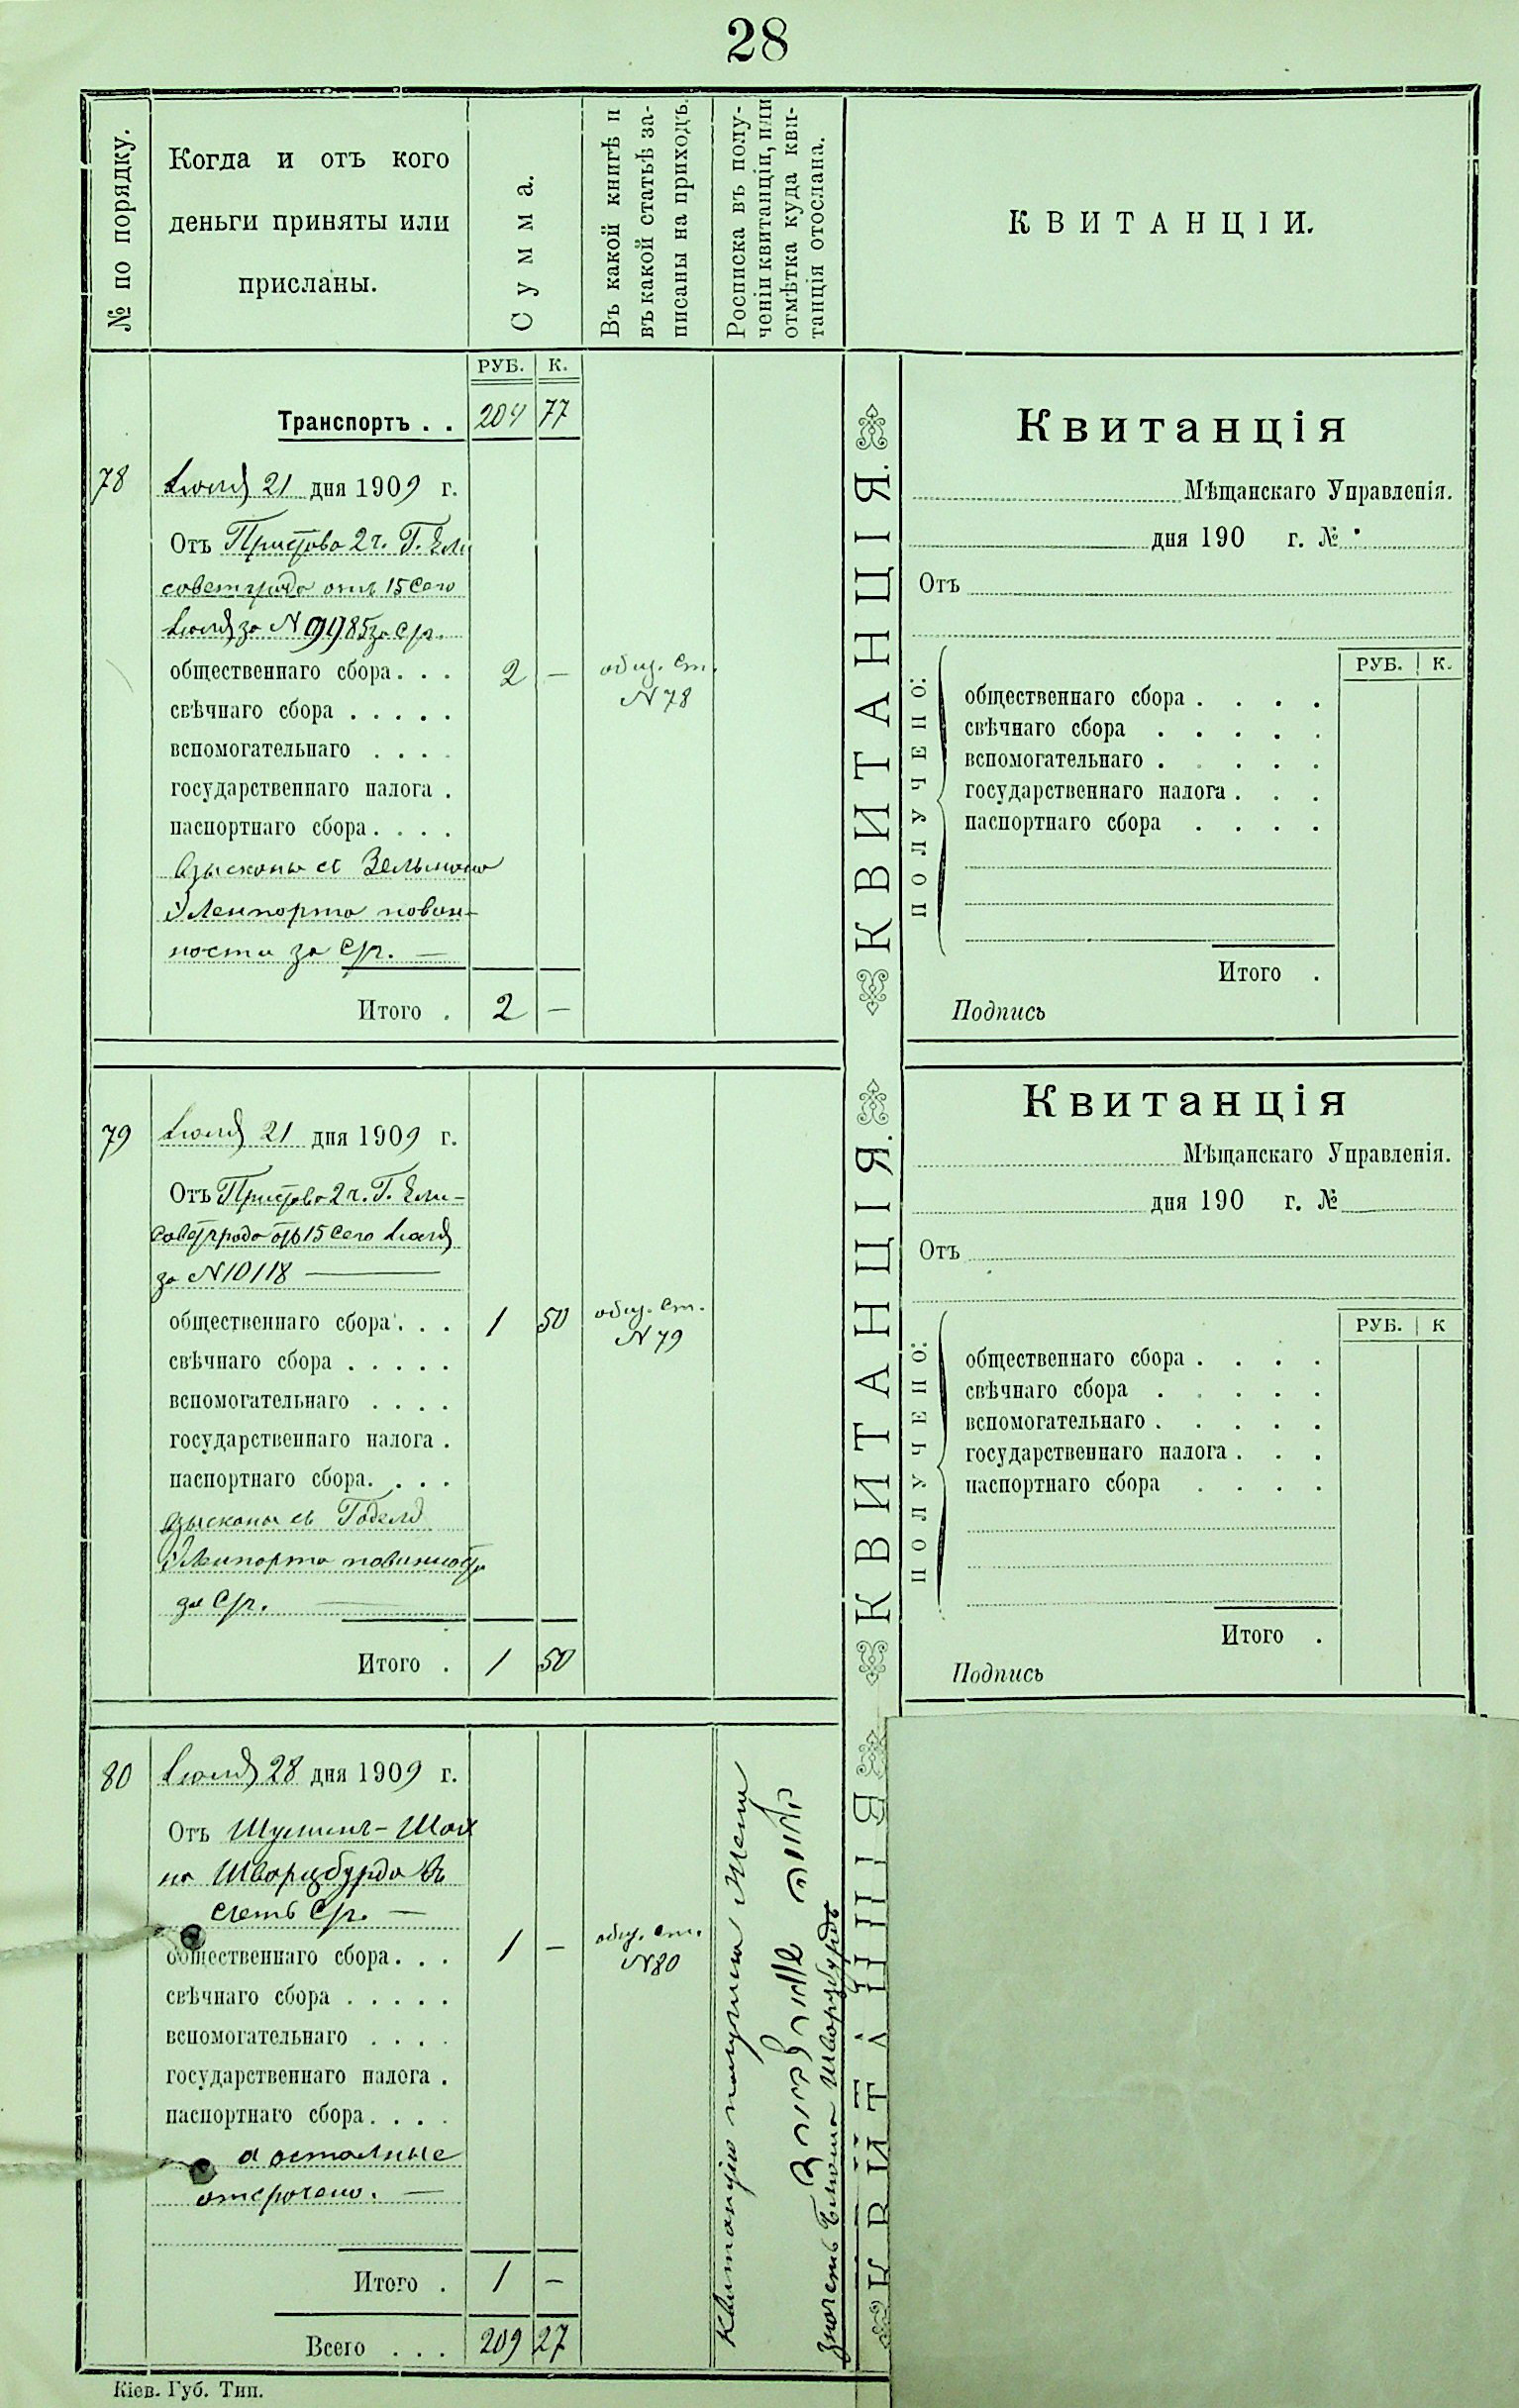 28
№ по порядку.
Когда и отъ кого
деньги приняты или
присланы.
Сумма.
Въ какой книгѣ и
въ какой статьѣ за-
писаны на приходъ.
Росписка въ полу-
ченіи квитанціи, или
отмѣтка куда кви-
танція отослана.
КВИТАНЦІИ.
РУБ. К.
Транспортъ . . 204 77
78
Іюля 21 дня 1909 г.
Отъ Пристава 2 ч. Г. Ели
саветграда отъ 15 сего
Іюля за N 9985 за с/г.
общественнаго сбора . . . 2 — общ. ст.
N 78
свѣчнаго сбора . . . . .
вспомогательнаго . . . .
государственнаго налога .
паспортнаго сбора . . . .
взысканы съ Зельмана
повин-
ности за с/г. —
Итого . 2 —
79
Іюля 21 дня 1909 г.
Отъ Пристава 2 ч. Г. Ели-
саветграда отъ 15 сего Іюля
за N 10118 —
общественнаго сбора . . . 1 50 общ. ст.
N 79
свѣчнаго сбора . . . . .
вспомогательнаго . . . .
государственнаго налога .
паспортнаго сбора. . . .
взысканы съ Годеля
повинность
за с/г. —
Итого . 1 50
80
Іюля 28 дня 1909 г.
Отъ
на Шварцбурда въ
счетъ с/г. —
общественнаго сбора . . . 1 — общ. ст.
N 80
свѣчнаго сбора . . . . .
вспомогательнаго . . . .
государственнаго налога .
паспортнаго сбора . . . .
а остальные
отсрочено. —
Итого . 1 —
Всего . . . 209 27
Квитанцію получила Жена
значитъ Шварцбурдъ
КВИТАНЦІЯ.
КВИТАНЦІЯ.
КВИТАНЦІЯ
Квитанція
Мѣщанскаго Управленія.
дня 190 г. №
Отъ
ПОЛУЧЕНО:
РУБ. К.
общественнаго сбора . . . .
свѣчнаго сбора . . . . .
вспомогательнаго . . . . .
государственнаго налога . . .
паспортнаго сбора . . . .
Итого .
Подпись
Квитанція
Мѣщанскаго Управленія.
дня 190 г. №
Отъ
ПОЛУЧЕНО:
РУБ. К
общественнаго сбора . . . .
свѣчнаго сбора . . . . .
вспомогательнаго . . . . .
государственнаго налога . . .
паспортнаго сбора . . . .
Итого .
Подпись
Кіев. Губ. Тип.